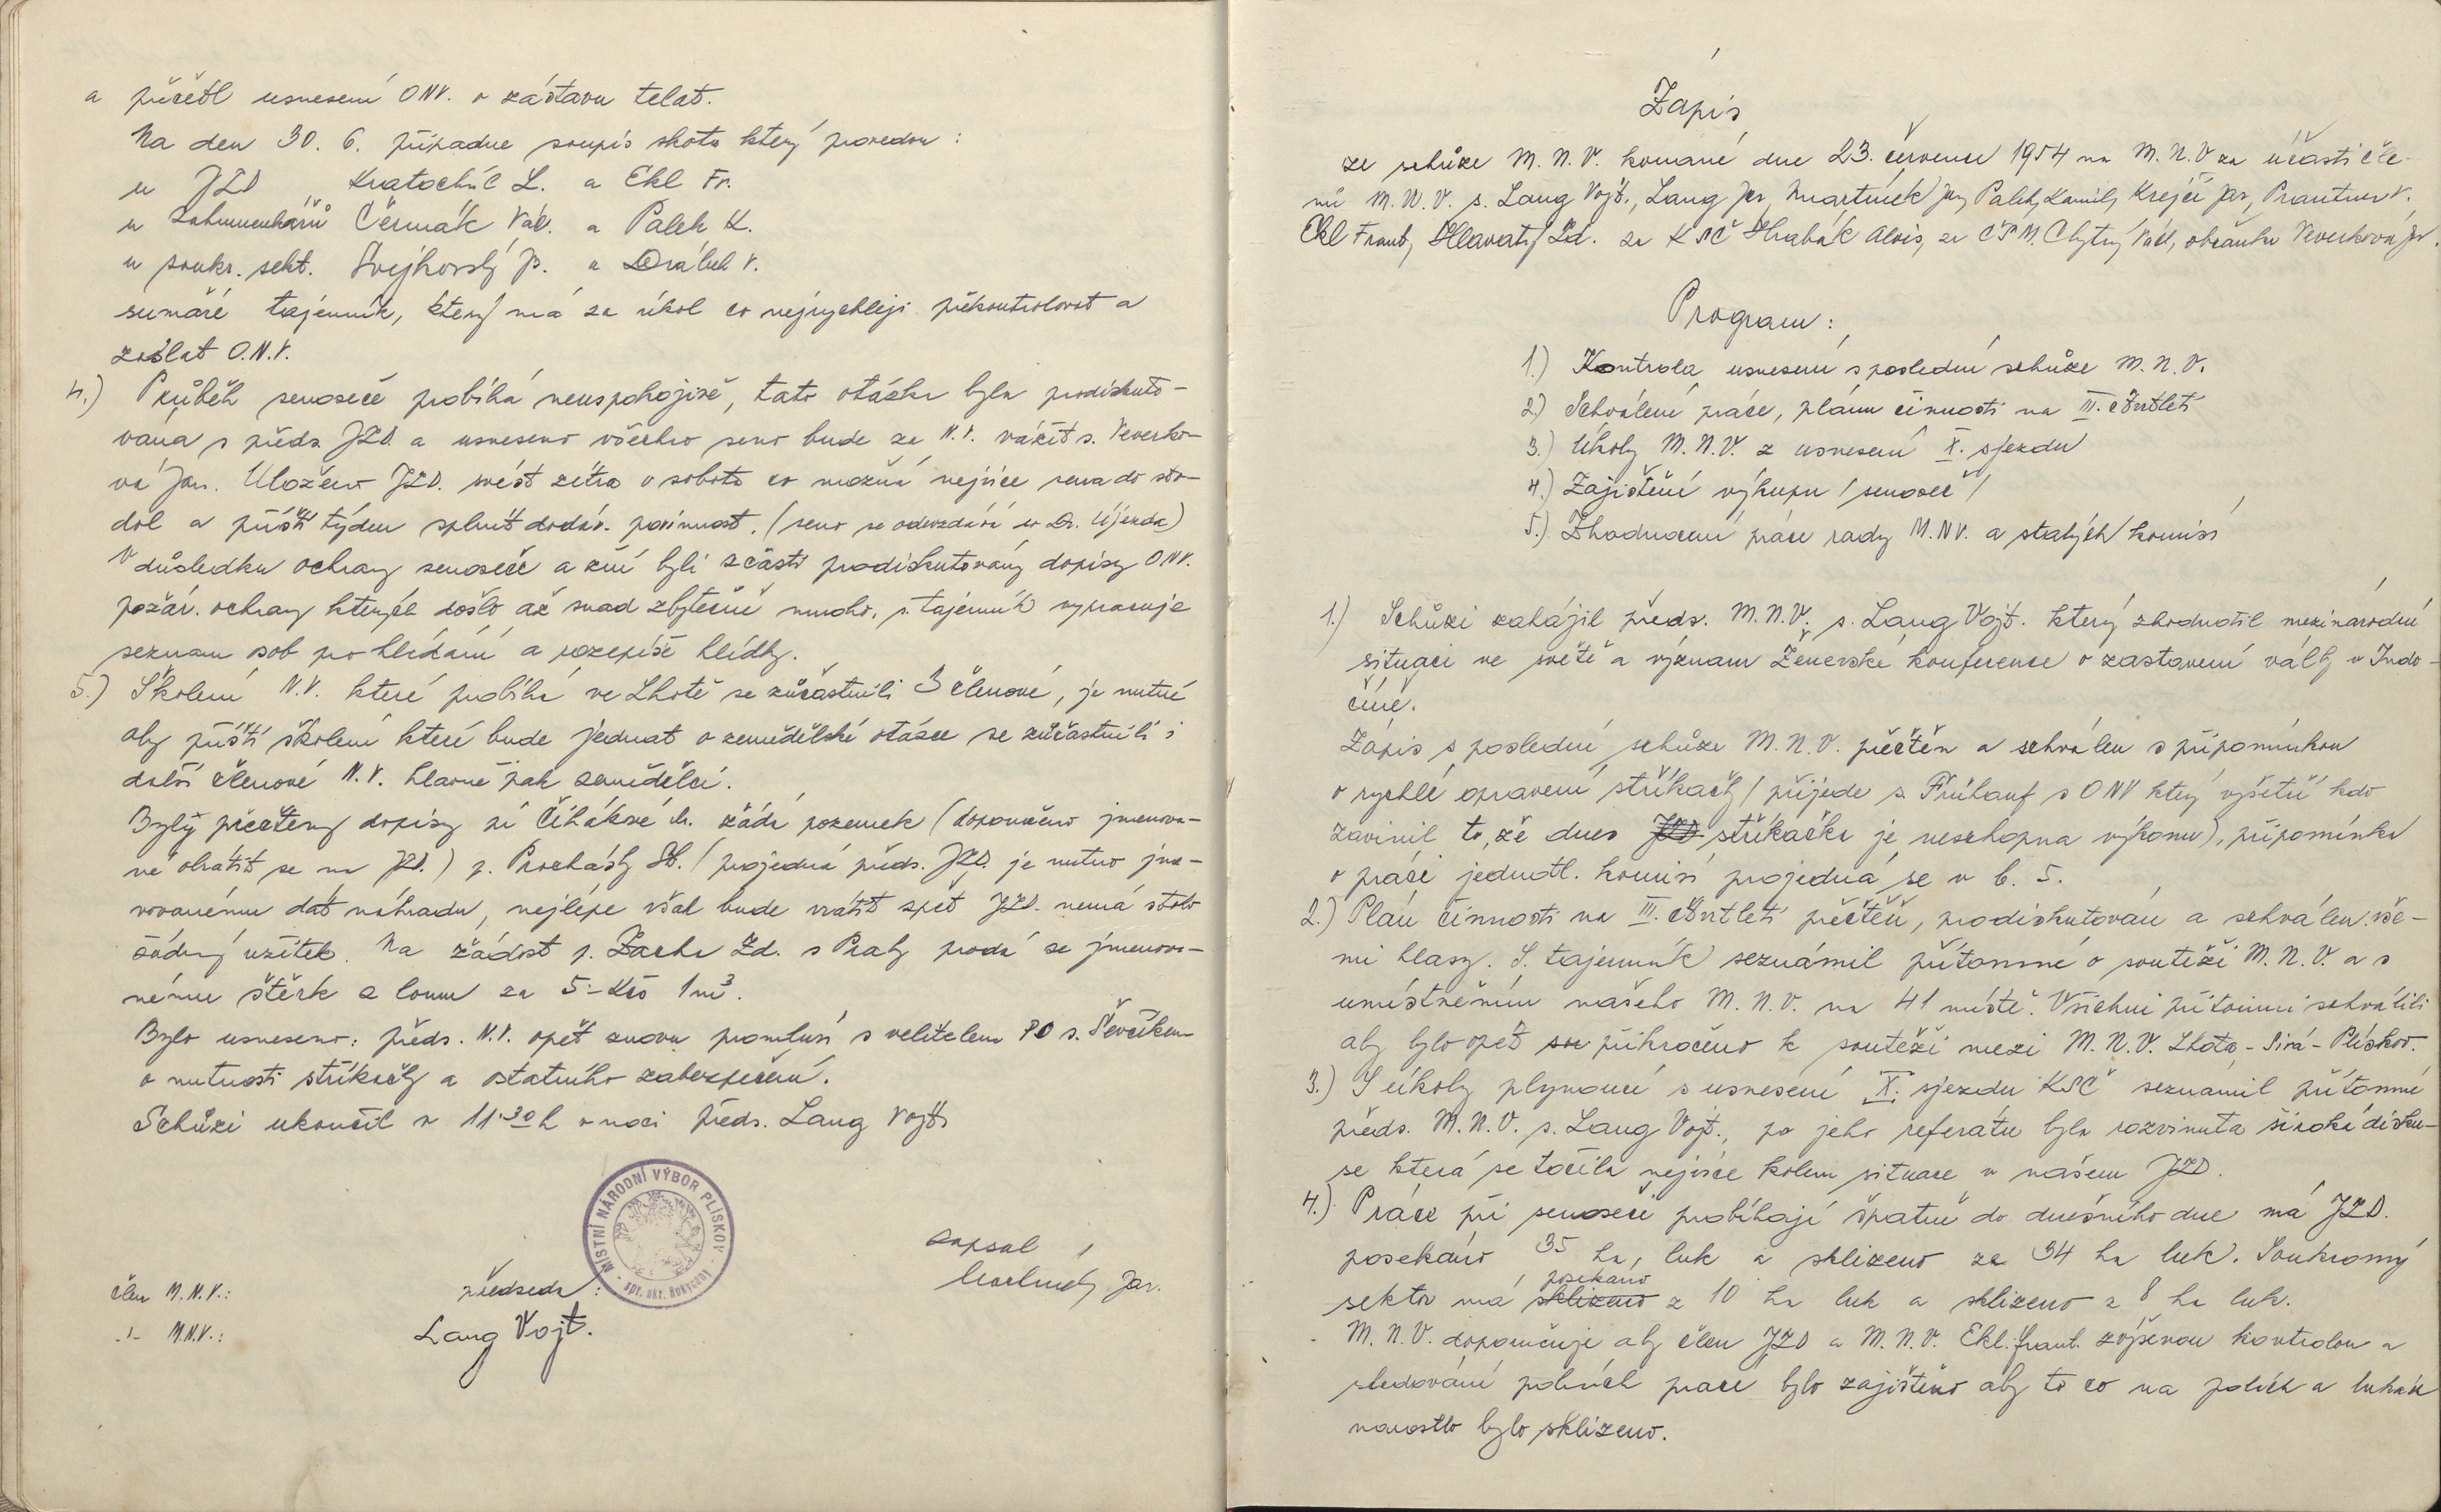 a přečetl usnesení ONV. o zástavu telat.
Na den 30. 6. připadne soupis skotu který provedou :
u JZD Kratochvíl L. a Ekl Fr.
u záhumenkářů Čermák Vác. a Palek K.
u soukr. sekt. Svejkovský J. a Drábek V.
sumáře tajemník, který má za úkol co nejrychleji překontrolovat a
zaslat O.N.V.
4.) Průběh senoseče probíhá neuspokojivě, tato otázka byla prodiskuto-
vána s předs. JZD. a usneseno všechno seno bude za N.V. vážit s. Veverko-
vá Jar. Uloženo JZD. svést zítra v sobotu co možná nejvíce sena do sto-
dol a příští týden splnit dodáv. povinnost. (seno se odevzdává do Dr. Újezda)
V důsledku ochrany senoseče a žní byli zčásti prodiskutovány dopisy ONV.
požár. ochrany kterých došlo až snad zbytečně mnoho, s. tajemník vypracuje
seznam osob po hlídání a rozepíše hlídky.
5.) Školení N.V. které probíhá ve Lhotě se zúčastnili 3 členové, je nutné
aby příští školení které bude jednat o zemědělské otázce se zúčastnili i
další členové N.V. hlavně pak zemědělci.
Byly přečteny dopisy pí Čihákové M. žádá pozemek (doporučeno jmenova-
né obrátit se na JZD.) p. Procházky (projedná předs. JZD. je nutno jme-
novanému dát náhradu, nejlépe však bude vrátit zpět JZD. nemá z toho
žádný užitek. Na žádost p. Zacha Zd. s Prahy prodá se jmenova-
nému štěrk z lomu za 5.- Kčs 1 m³.
Bylo usneseno: předs. N.V. opět znovu promluví s velitelem PO s. Ševčíkem
o nutnosti stříkačky a ostatního zabezpečení.
Schůzi ukončil v 11.30 h v noci předs. Lang Vojt.
MÍSTNÍ NÁRODNÍ VÝBOR PLÍSKOV
spr. okr. Rokycany
zapsal
Jar.
člen M.N.V.:
předseda :
-"- M.N.V.:
Lang Vojt.
Zápis
ze schůze M. N. V. konané dne 23. července 1954 na M. N. V za účasti čle-
nů M. N. V. s. Lang Vojt., Lang Jar, Martínek Jar, Palek Kamil, Krejčí Jar, Prantner V.
Ekl Frant, Hlavatý Zd. za KSČ Hrabák Alois, za ČSM. Chytrý Václ, občanka Veverková Jar.
Program :
1.) Kontrola usnesení s poslední schůze M. N. V.
2.) Schválení práce, plánu činnosti na III. čtvrtletí
3.) Úkoly M. N. V. z usnesení X. sjezdu
4.) Zajištění výkupu / senoseč /
5.) Zhodnocení práce rady M. NV. a stalých komisí
1.) Schůzi zahájil předs. M. N. V. s. Lang Vojt. který zhodnotil mezinárodní
situaci ve světě a význam Ženevské konference o zastavení války v Indo-
číně.
Zápis s poslední schůze M. N. V. přečten a schválen s připomínkou
o rychlé opravení stříkačky / přijede s. Frühauf s ONV který vyšetří kdo
zavinil to, že dnes JZD stříkačka je neschopna výkonu), připomínka
o práci jednotl. komisí projedná se v b. 5.
2.) Plán činnosti na III. čtvrtletí přečten, prodiskutován a schválen vše-
mi hlasy. S. tajemník seznámil přítomné o soutěži M. N. V. a s
umístněním našeho M. N. V. na 41 místě. Všichni přítomni schválili
aby bylo opět sou přikročeno k soutěži mezi M. N. V. Lhota - Sirá - Plískov.
3.) S úkoly plynoucí s usnesení X. sjezdu KSČ seznámil přítomné
předs. M. N. V. s. Lang Vojt., po jeho referátu byla rozvinuta široká disku-
se která se točila nejvíce kolem situace v našem JZD.
4.) Práce při senoseči probíhají špatně do dnešního dne má JZD.
posekáno 35 ha, luk a sklizeno za 34 ha luk. Soukromý
posekáno
sektor má sklizeno z 10 ha luk a sklizeno z 8 ha luk.
M. N. V. doporučuje aby člen JZD a M. N. V. Ekl. Frant. zvýšenou kontrolou a
sledování polních prací bylo zajištěno aby to co na polích a lukách
narostlo bylo sklizeno.